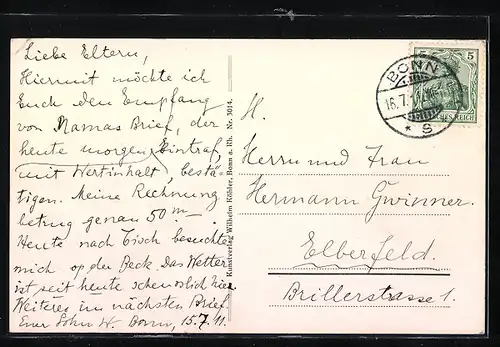 Liebe Eltern,
Hiermit möchte ich
Euch den Empfang
von Mamas Brief, der
heute morgen eintraf,
mit Wertinhalt, bestä-
tigen. Meine Rechnung
betrug genau 50 m
Heute nach Tisch besuchte
mich op der Beck. Das Wetter
ist seit heute scheusslich hier
Weiteres im nächsten Brief
Euer Sohn W. Bonn, 15.7.11.
Kunstverlag Wilhelm Köhler, Bonn a. Rh. Nr. 3014.
5 5
DEUTSCHES REICH
BONN
16.7.
* S
H.
Herrn und Frau
Hermann Gwinner.
Elberfeld.
Brillerstrasse 1.